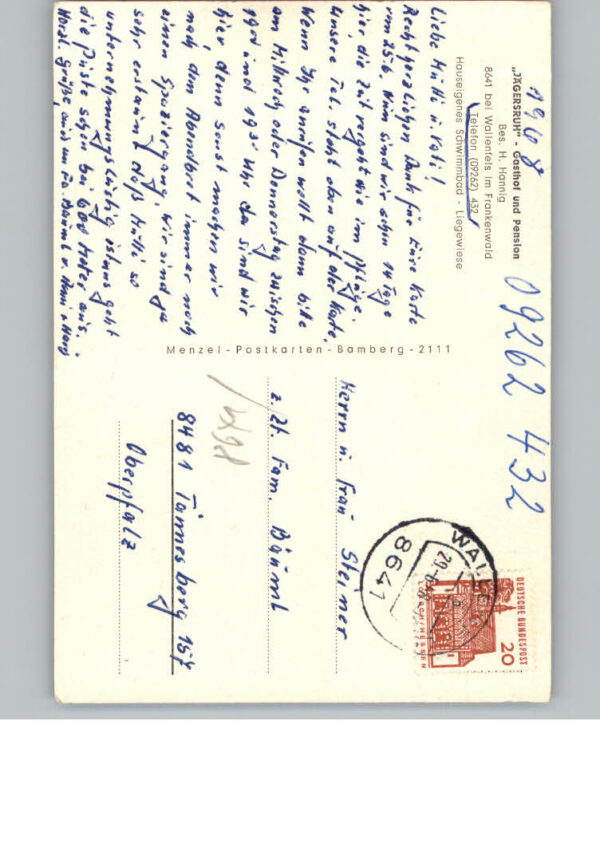 1968
„JÄGERSRUH" - Gasthof und Pension
Bes. H. Hannig
8641 bei Wallenfels im Frankenwald
Telefon (09262) 432
Hauseigenes Schwimmbad - Liegewiese
09262 432
Liebe Mutti u. Vati!
Recht herzlichen Dank für Eure Karte
vom 25.6. Nun sind wir schon 14 Tage
hier die Zeit vergeht wie im Pfluge.
Unsere Tel. steht oben auf der Karte.
Wenn Ihr anrufen wollt dann bitte
am Mittwoch oder Donnerstag zwischen
19 und 19 30 Uhr da sind wir
hier denn sonst machen wir
nach dem Abendbrot immer noch
einen Spaziergang, wir sind ja
sehr erstaunt daß Mutti so
unternehmungslustig ist uns geht
die Puste schon bei 600 Meter aus.
Herzl. Grüße auch an Fa. Bäuml v.
Menzel - Postkarten - Bamberg - 2111
Herrn u. Frau Steiner
z. Zt. Fam. Bäuml
8481 Tännesberg 157
Oberpfalz
DEUTSCHE BUNDESPOST
20
LORSCH/HESSEN
8641